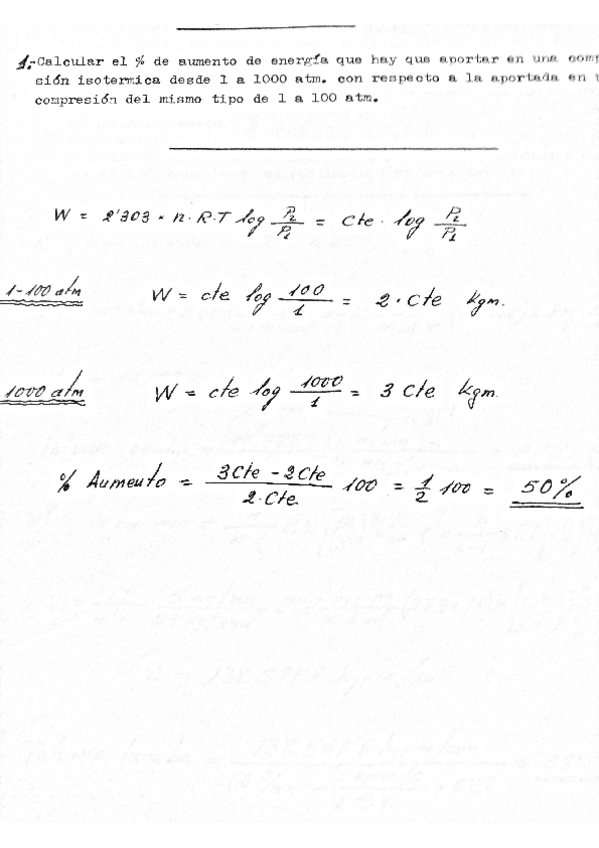 1.-Calcular el % de aumento de energía que hay que aportar en una comp
sión isotermica desde 1 a 1000 atm. con respecto a la aportada en
compresión del mismo tipo de 1 a 100 atm.
W = 2'303 · n·R·T log P₂/P₁ = Cte · log P₂/P₁
1-100 atm W = cte log 100/1 = 2·Cte kgm.
1000 atm W = cte log 1000/1 = 3 Cte kgm.
% Aumento = 3Cte - 2Cte / 2·Cte 100 = 1/2 100 = 50%